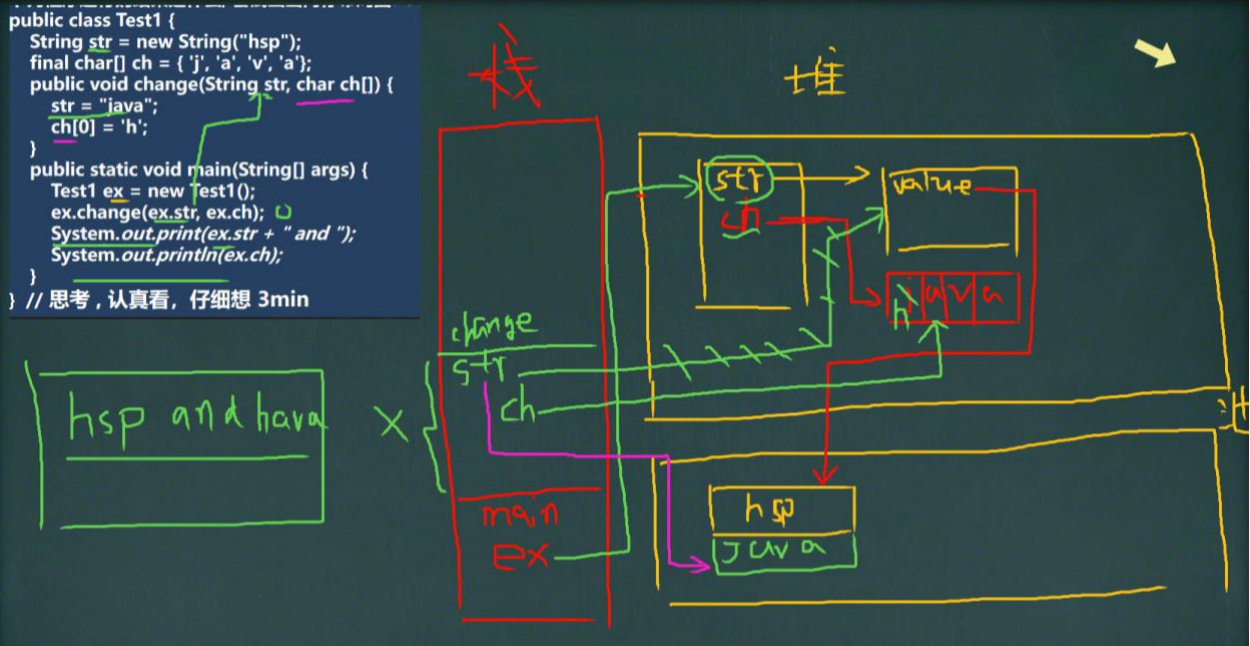 public class Test1 {
String str = new String("hsp");
final char[] ch = { 'j', 'a', 'v', 'a'};
public void change(String str, char ch[]) {
str = "java";
ch[0] = 'h';
}
public static void main(String[] args) {
Test1 ex = new Test1();
ex.change(ex.str, ex.ch);
System.out.print(ex.str + " and ");
System.out.println(ex.ch);
}
} // 思考，认真看，仔细想 3min
栈
堆
str
ch
value
j a v a
h
change
str
ch
hsp and hava
main
ex
hsp
java